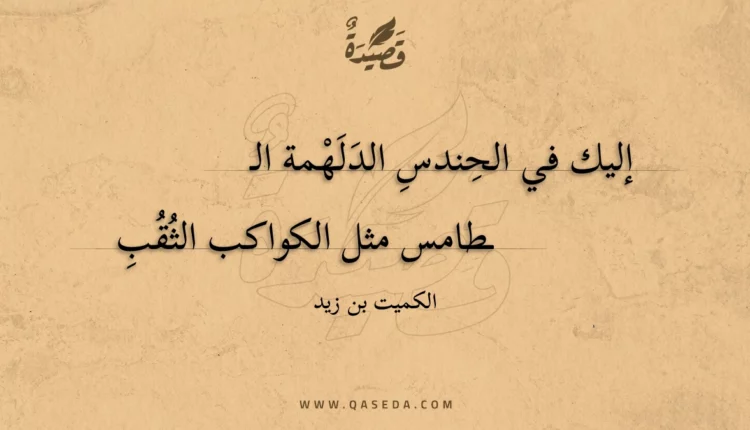 قَصِيْدَةٌ
إليك في الحِندسِ الدَلَهْمة الـ
ـطامس مثل الكواكب الثُقُبِ
الكميت بن زيد
WWW.QASEDA.COM